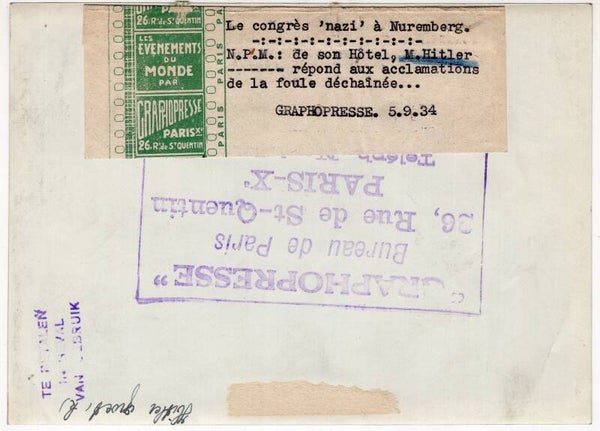 26. R. de St QUENTIN
LES
EVENEMENTS
DU
MONDE
PAR
GRAPHOPRESSE
PARIS Xe
26. R. de St QUENTIN
PARIS
PARIS
PARIS
Le congrès 'nazi' à Nuremberg.
-:-:-:-:-:-:-:-:-:-:-
N.P.M.: de son Hôtel, M.Hitler
------- répond aux acclamations
de la foule déchaînée...
GRAPHOPRESSE. 5.9.34
"GRAPHOPRESSE"
Bureau de Paris
26, Rue de St-Quentin
PARIS-Xe
Téléph
TE
VAN
Hitler